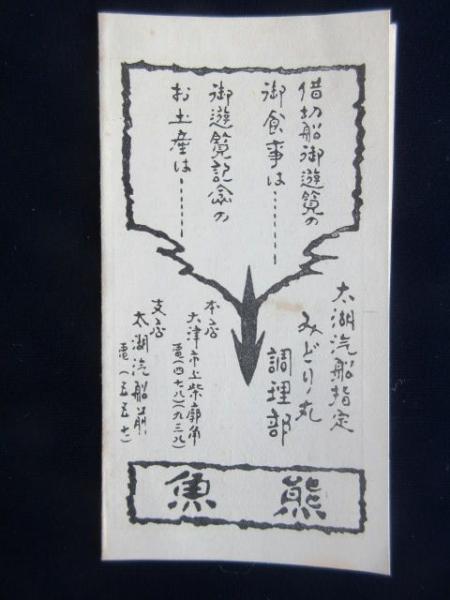 借切船御遊覧の
御食事は………
御遊覧記念の
お土産は………
太湖汽船指定
みどり丸
調理部
本店
大津市上柴町角
電(四七八)(九三八)
支店
太湖汽船前
電(一五五七)
魚熊